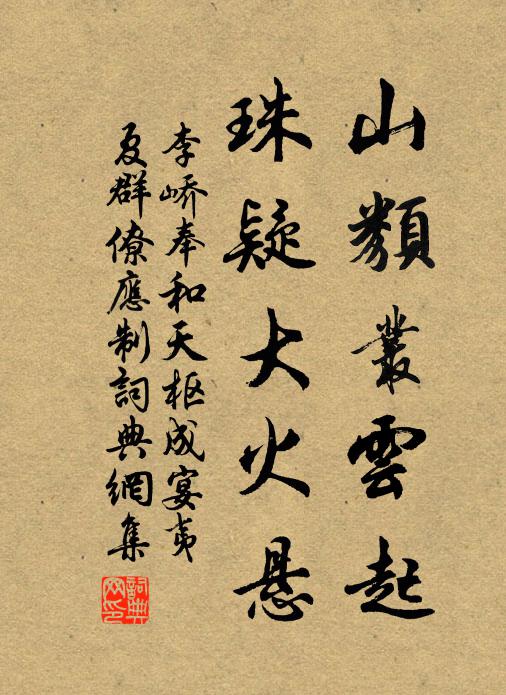 山類叢雲起
珠疑大火懸
李嶠奉和天枢成宴夷
夏群僚應制詞典網集
詞典网印